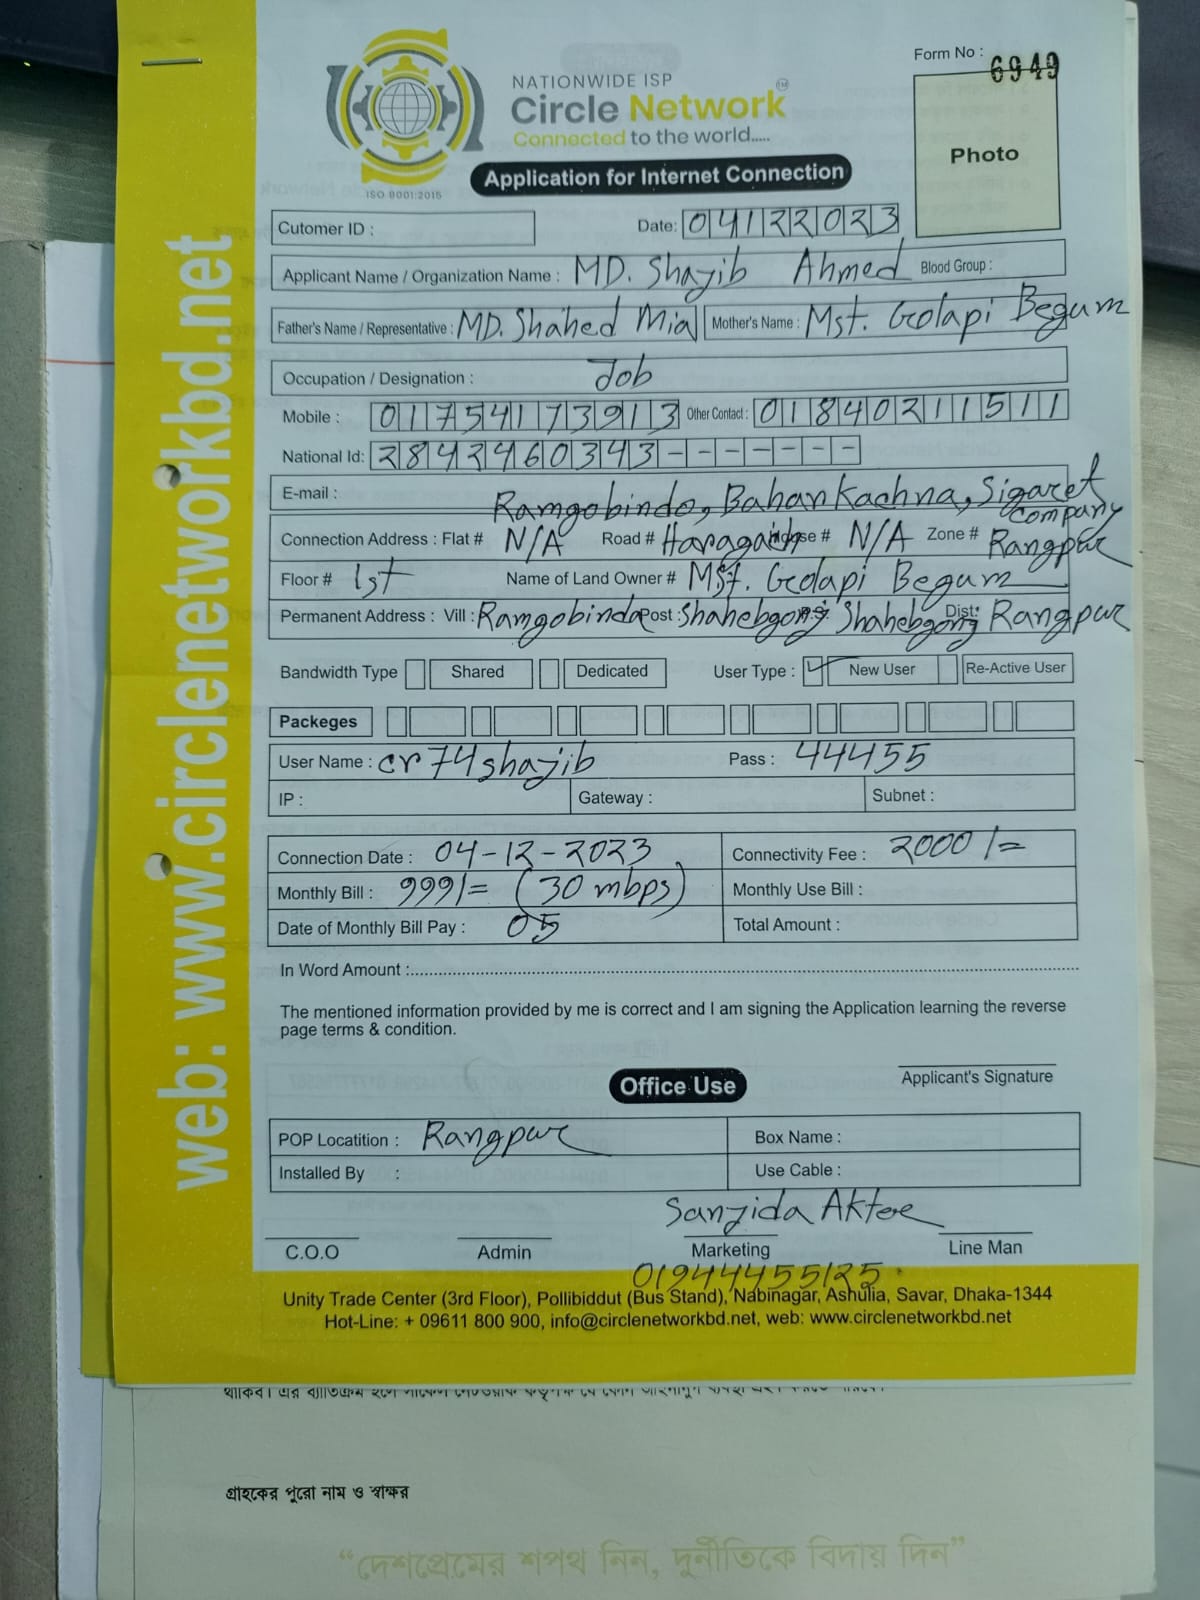 Form No : 6949
NATIONWIDE ISP
Circle Network TM
Connected to the world.....
ISO 9001:2015
Application for Internet Connection
Photo
Cutomer ID : Date: 04122023
Applicant Name / Organization Name : MD. Shajib Ahmed Blood Group :
Father's Name / Representative : MD. Shahed Mia Mother's Name : Mst. Golapi Begum
Occupation / Designation : Job
Mobile : 01754173913 Other Contact : 01840211511
National Id: 2842460343-------
E-mail : Ramgobindo, Bahan Kachna, Sigaret company
Connection Address : Flat # N/A Road # Haragach House # N/A Zone # Rangpur
Floor # 1st Name of Land Owner # Mst. Golapi Begum
Permanent Address : Vill : Ramgobinda Post : Shahebgong Shahebgong Dist: Rangpur
Bandwidth Type Shared Dedicated User Type : ✓ New User Re-Active User
Packeges
User Name : cr74shajib Pass : 44455
IP : Gateway : Subnet :
Connection Date : 04-12-2023 Connectivity Fee : 2000/=
Monthly Bill : 999/= (30 mbps) Monthly Use Bill :
Date of Monthly Bill Pay : 05 Total Amount :
In Word Amount :
The mentioned information provided by me is correct and I am signing the Application learning the reverse
page terms & condition.
Applicant's Signature
Office Use
POP Locatition : Rangpur Box Name :
Installed By : Use Cable :
Sanjida Akter
C.O.O Admin Marketing Line Man
01944455125
Unity Trade Center (3rd Floor), Pollibiddut (Bus Stand), Nabinagar, Ashulia, Savar, Dhaka-1344
Hot-Line: + 09611 800 900, info@circlenetworkbd.net, web: www.circlenetworkbd.net
web: www.circlenetworkbd.net
গ্রাহকের পুরো নাম ও স্বাক্ষর
“দেশপ্রেমের শপথ নিন, দুর্নীতিকে বিদায় দিন”